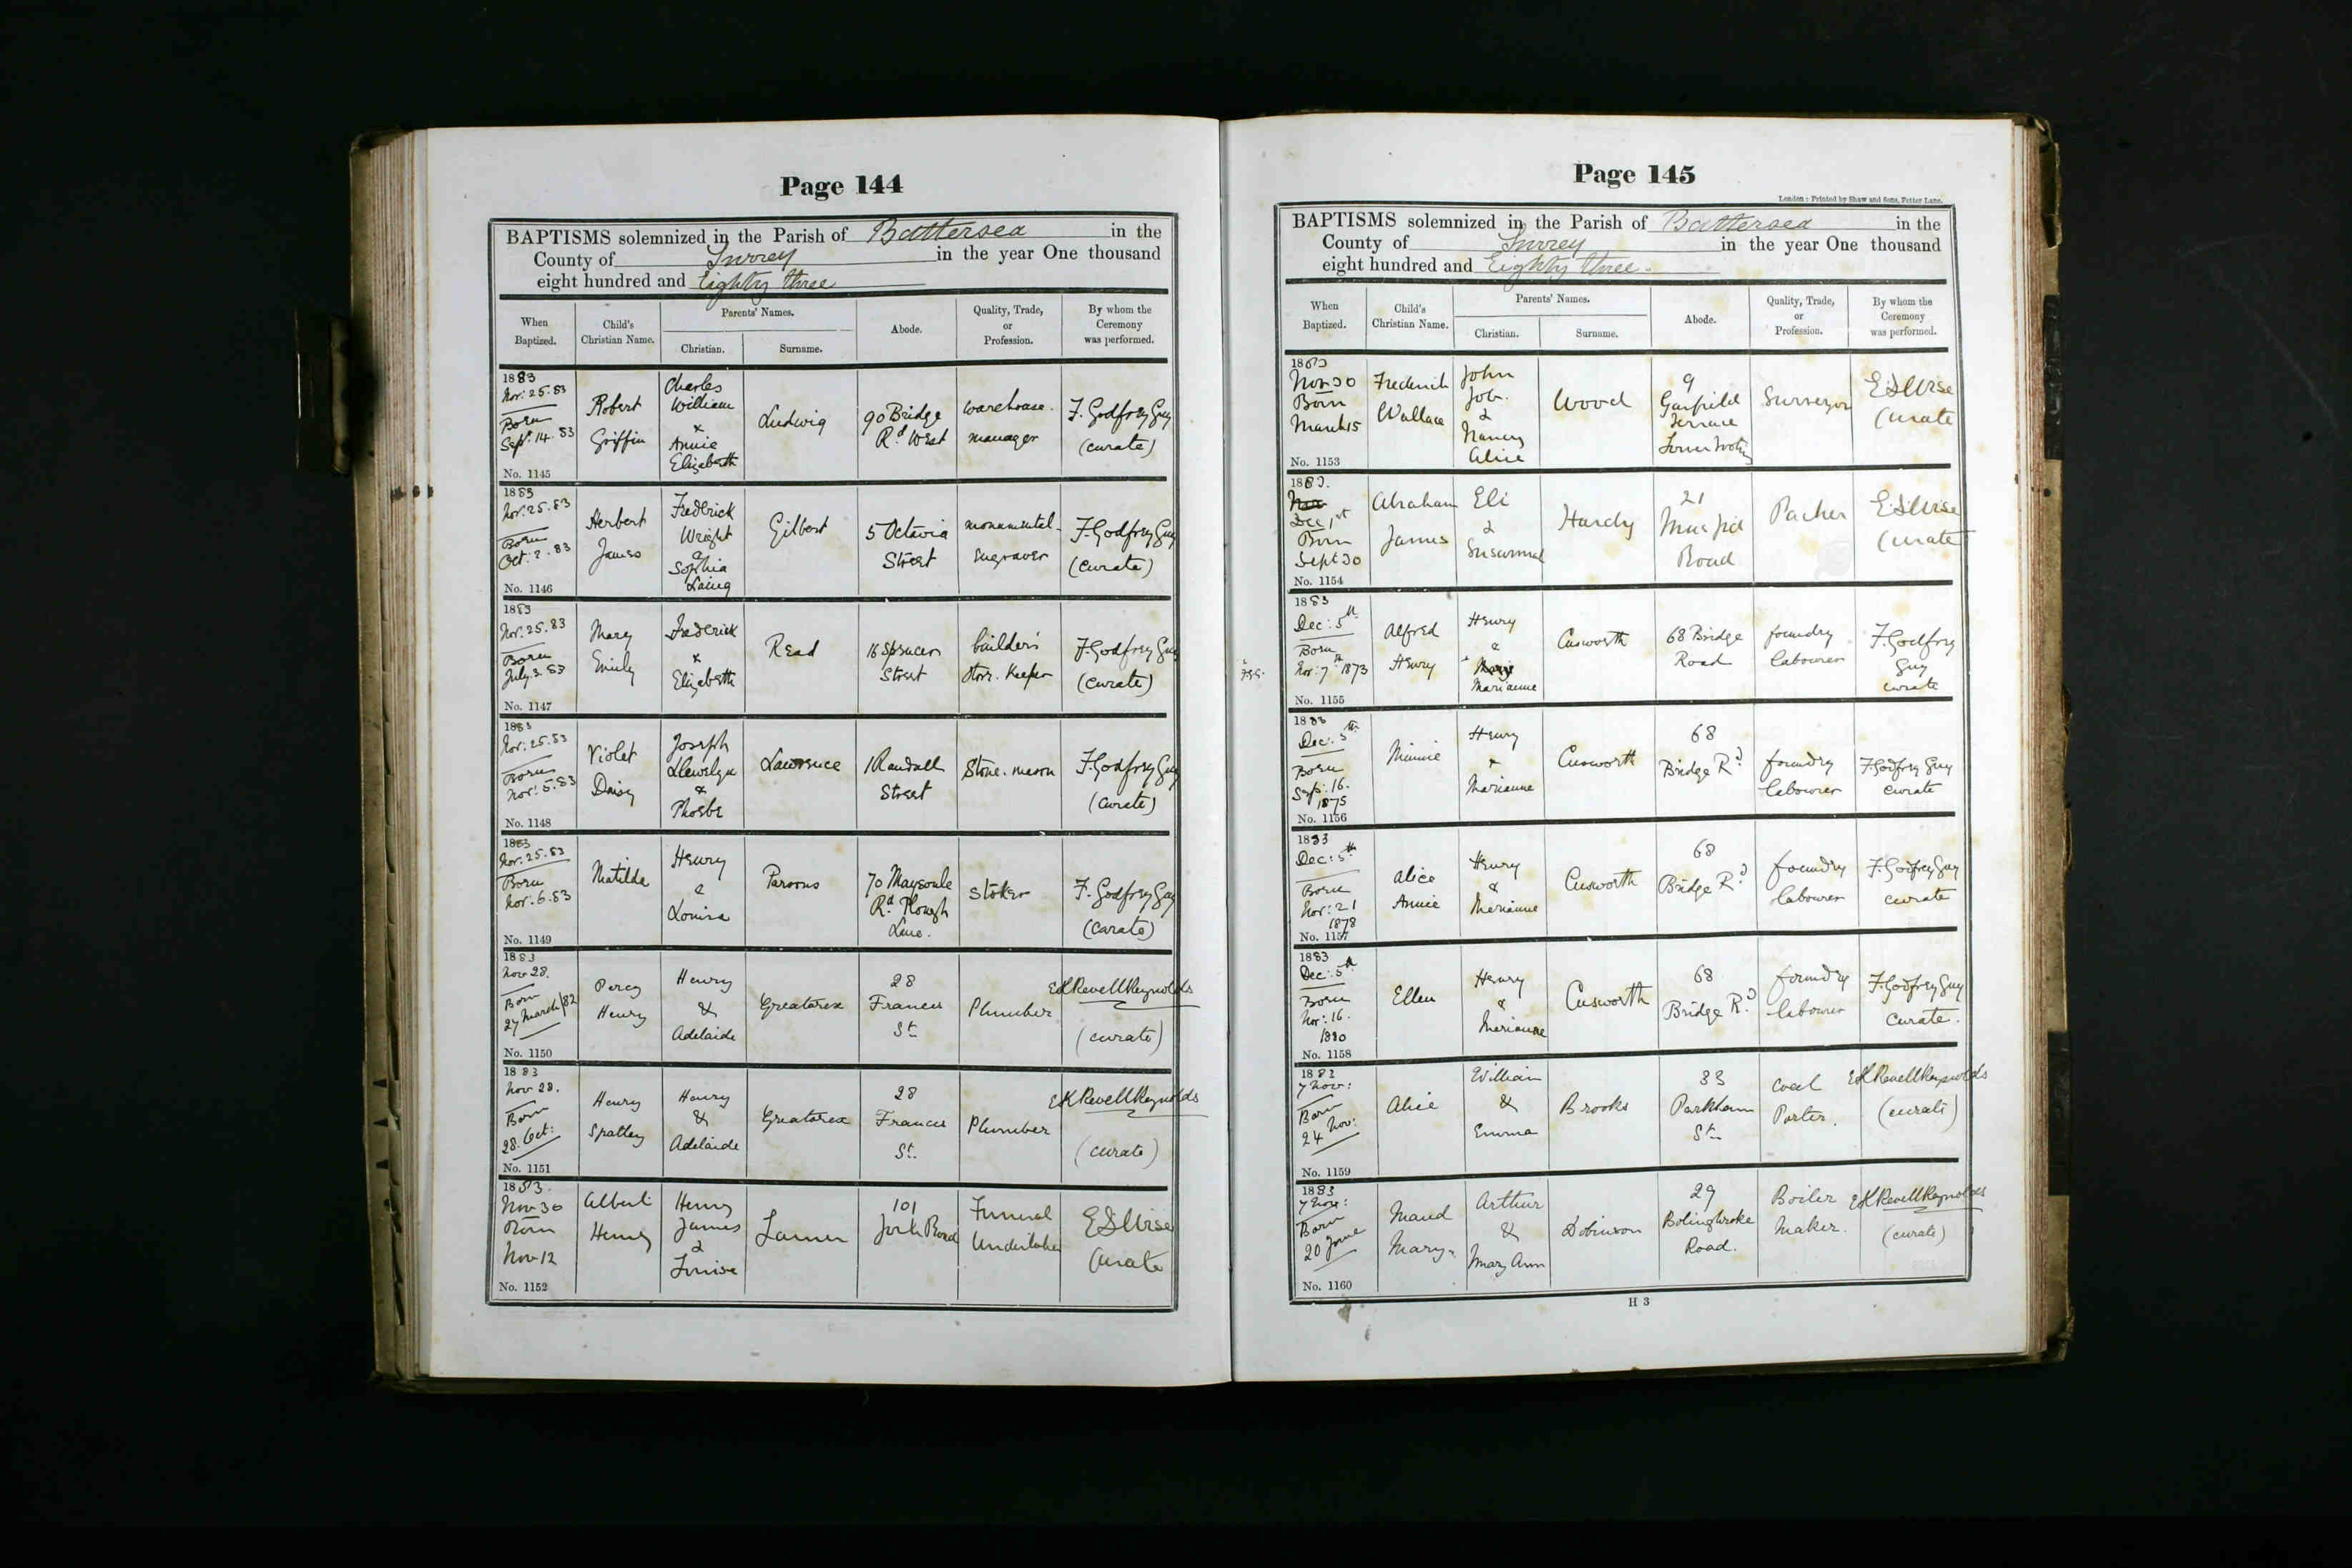 Page 144
BAPTISMS solemnized in the Parish of Battersea in the
County of Surrey in the year One thousand
eight hundred and Eighty three
When Baptized.
Child's Christian Name.
Parents' Names.
Christian.
Surname.
Abode.
Quality, Trade, or Profession.
By whom the Ceremony was performed.
1883
Nov: 25. 83
Born
Sept. 14. 83
No. 1145
Robert
Griffin
Charles
William
&
Annie
Elizabeth
Ludwig
90 Bridge
Rd West
warehouse.
manager
F. Godfrey Guy
(curate)
1883
Nov. 25. 83
Born
Oct: 2. 83
No. 1146
Herbert
James
Frederick
Wright
&
Sophia
Laing
Gilbert
5 Octavia
Street
monumental-
engraver
F. Godfrey Guy
(curate)
1883
Nov. 25. 83
Born
July. 2. 83
No. 1147
Mary
Emily
Frederick
&
Elizabeth
Read
16 Spencer
Street
builder's
Store. Keeper
F. Godfrey Guy
(curate)
1883
Nov: 25. 83
Born
Nov: 5. 83
No. 1148
Violet
Daisy
Joseph
Llewelyn
&
Phoebe
Lawrence
1 Randall
Street
Stone. mason
F. Godfrey Guy
(curate)
1883
Nov: 25. 83
Born
Nov. 6. 83
No. 1149
Matilda
Henry
&
Louisa
Parsons
70 Maysoule
Rd. Plough
Lane.
Stoker
F. Godfrey Guy
(curate)
1883
Nov 28.
Born
27 March/82
No. 1150
Percy
Henry
Henry
&
Adelaide
Greatorex
28
Francis
St.
Plumber
EK Revell Reynolds
(curate)
1883
Nov. 28.
Born
28. Oct:
No. 1151
Henry
Spatley
Henry
&
Adelaide
Greatorex
28
Francis
St.
Plumber
EK Revell Reynolds
(curate)
1883.
Nov 30
Born
Nov 12
No. 1152
Albert
Henry
Henry
James
&
Louise
101
York Road
Funeral
Undertaker
E S Wise
Curate
Page 145
London: Printed by Shaw and Sons, Fetter Lane.
BAPTISMS solemnized in the Parish of Battersea in the
County of Surrey in the year One thousand
eight hundred and Eighty three.
When Baptized.
Child's Christian Name.
Parents' Names.
Christian.
Surname.
Abode.
Quality, Trade, or Profession.
By whom the Ceremony was performed.
1883
Nov 30
Born
March 15
No. 1153
Frederick
Wallace
John
Job.
&
Nancy
Alice
Wood
9
Garfield
Terrace
Surveyor
E S Wise
Curate
1883.
Dec 1st
Born
Sept 30
No. 1154
Abraham
James
Eli
&
Susannah
Hardy
21
Road
Packer
E S Wise
Curate
1883
Dec: 5th
Born
Nov: 7th 1873
No. 1155
Alfred
Henry
Henry
&
Marianne
Cusworth
68 Bridge
Road
foundry
labourer
F. Godfrey
Guy
curate
1883
Dec: 5th
Born
Sept: 16.
1875
No. 1156
Minnie
Henry
&
Marianne
Cusworth
68
Bridge Rd
foundry
labourer
F. Godfrey Guy
curate
1883
Dec: 5th
Born
Nov: 21
1878
No. 1157
Alice
Annie
Henry
&
Marianne
Cusworth
68
Bridge Rd
foundry
labourer
F. Godfrey Guy
curate
1883
Dec: 5th
Born
Nov: 16.
1880
No. 1158
Ellen
Henry
&
Marianne
Cusworth
68
Bridge Rd
foundry
labourer
F. Godfrey Guy
Curate.
1883
7 Nov:
Born
24 Nov:
No. 1159
Alice
William
&
Emma
Brooks
33
Parkham
St.
Coal
Porter.
EK Revell Reynolds
(curate)
1883
7 Nov:
Born
20 June
No. 1160
Maud
Mary.
Arthur
&
Mary Ann
Dobinson
29
Bolingbroke
Road.
Boiler
Maker.
EK Revell Reynolds
(curate)
H 3